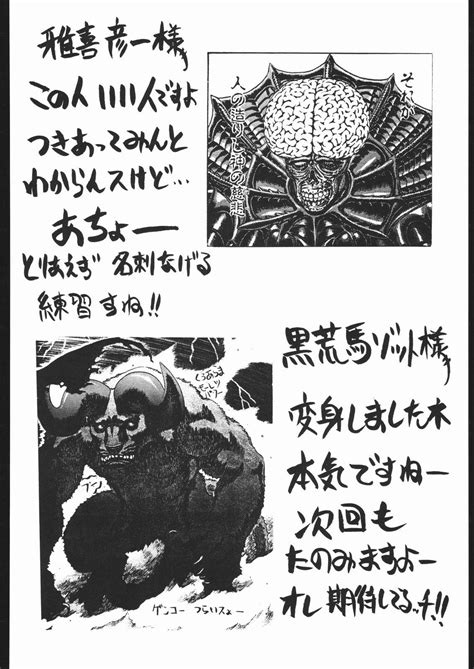 雅喜彦一様
この人いい人ですよ
つきあってみんと
わからんスけど…
あちょー
とりあえず 名刺なげる
練習すね!!
それが
人の造りし神の慈悲
黒荒馬ゾット様
変身しましたネ
本気ですねー
次回も
たのみますよー
オレ 期待してるッチ!!
ブン
ゲンコー つらいスょー